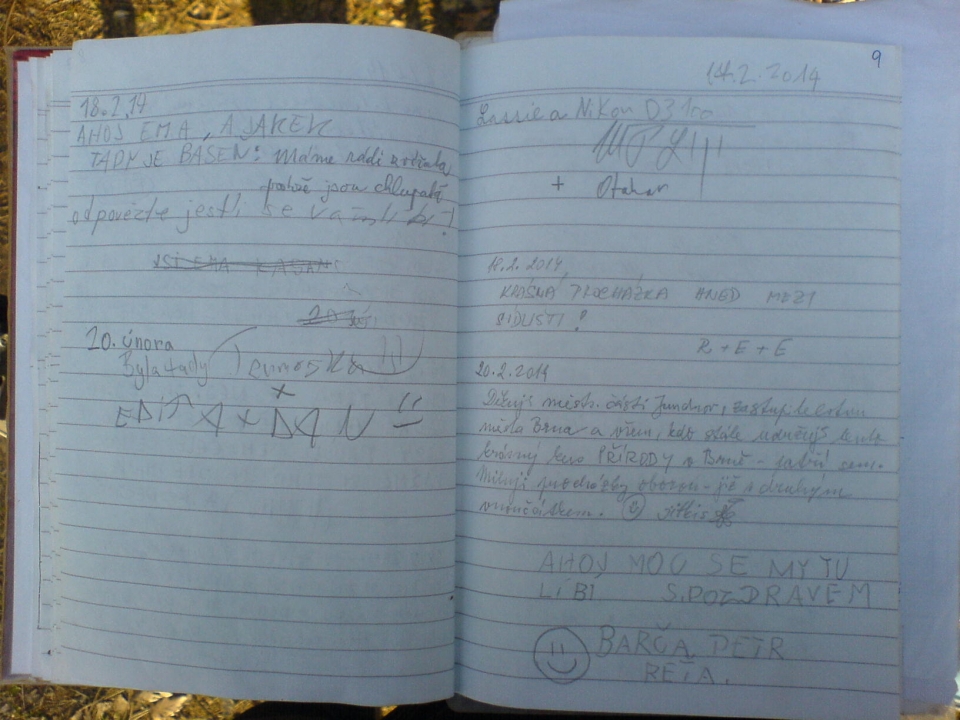 18.2.14
AHOJ EMA, A JAKEK
TADY JE BÁSEŇ: Máme rádi zvířata,
protože jsou chlupatá
odpovězte jestli se vám líbí!
20. února
Byla tady
+
EDITA + DAN
9
14.2.2014
a Nikon D3100
+ Otakar
18.2.2014,
KRÁSNÁ PROCHÁZKA HNED MEZI
SÍDLIŠTI!
R + E + E
20.2.2014
Děkuji městs. části Jundrov, zastupitelstvu
města Brna a všem, kdo stále udržují tento
krásný kus PŘÍRODY v Brně - patří sem.
Miluji procházky oborou - již s druhým
vnoučátkem.
AHOJ MOC SE MY TU
LÍBÍ S.POZDRAVEM
BARČA PETR
REŤA.